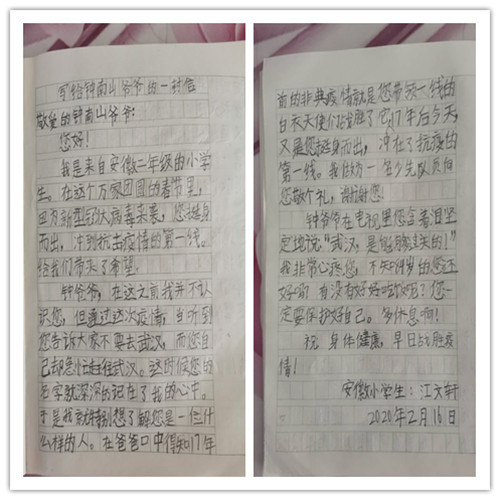 写给钟南山爷爷的一封信
敬爱的钟南山爷爷:
您好!
我是来自安徽二年级的小学
生。在这个万家团圆的春节里,
因为新型冠大病毒来袭,您挺身
而出,冲到抗击疫情的第一线。
给我们带来了希望。
钟爷爷,在这之前我并不认
识您,但通过这次疫情,当听到
您告诉大家不要去武汉,而您自
己却急忙赶往武汉。这时候您的
名字就深深的记在了我的心中。
于是我就特别想了解您是一位什
么样的人。在爸爸口中得知17年
前的非典疫情就是您带领一线的
白衣天使们战胜了它17年后今天,
又是您挺身而出,冲在了抗疫的
第一线。我做为一名少先队员向
您敬个礼,谢谢您!
钟爷爷在电视里您含着泪坚
定地说“武汉,是能过关的!”
我非常心疼您,不知84岁的您还
好吗?有没有好好吃饭呢?您一
定要保护好自己。多休息啊!
祝身体健康,早日战胜疫
情!
安徽小学生:江文轩
2020年2月16日